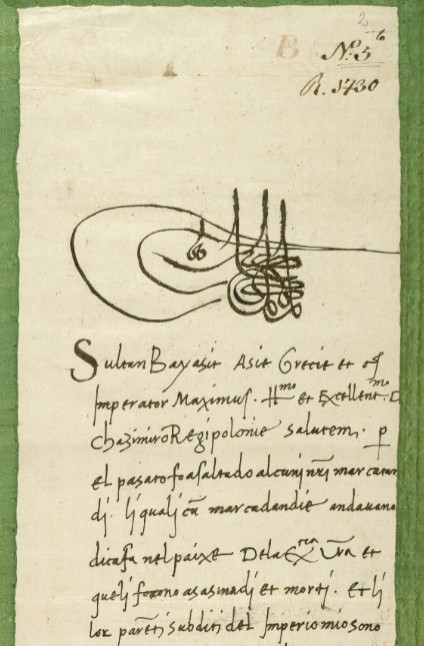 2
B
N.º 5 6
R. 1430
Sultan Bayasit Asie Grecie et
Imperator Maximus. Ill.mo et Excellent.mo D
Chazimiro Regi polonie salutem. p
el pasato fo asaltado alcuni nr̃i marcatan
di. li quali cũ marcadandie andavano
di casa nel paixe De la Ex.tia Vr̃a et
queli forono asasinadi et morti. et li
lor parẽti subditi del Imperio mio sono